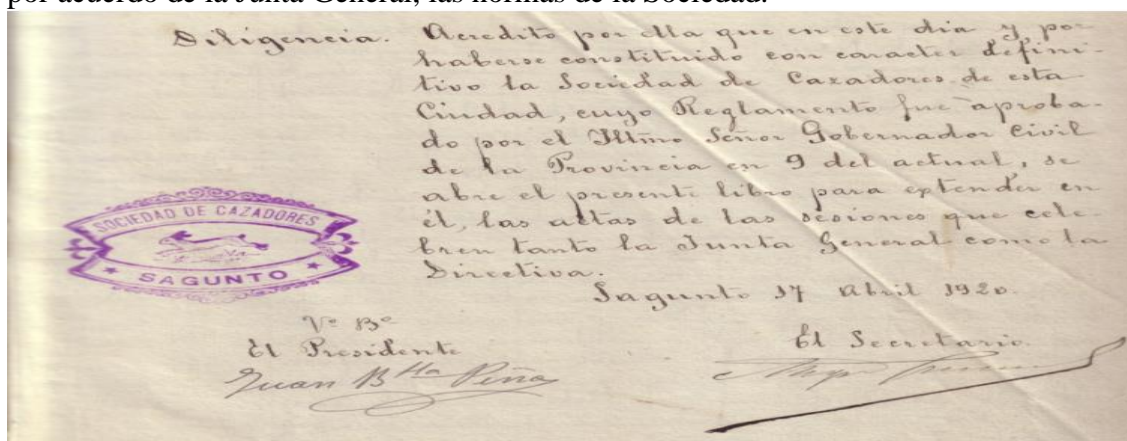 por acuerdo de la Junta General, las normas de la Sociedad.
Diligencia. Acredito por ella que en este dia y por
haberse constituido con caracter defini-
tivo la Sociedad de Cazadores de esta
Ciudad, cuyo Reglamento fue aproba-
do por el Iltmo Señor Gobernador Civil
de la Provincia en 9 del actual, se
abre el presente libro para extender en
él, las actas de las sesiones que cele-
bren tanto la Junta General como la
Directiva.
Sagunto 17 Abril 1920.
SOCIEDAD DE CAZADORES
SAGUNTO
Vº Bº
El Presidente
El Secretario
Juan Bta Piña